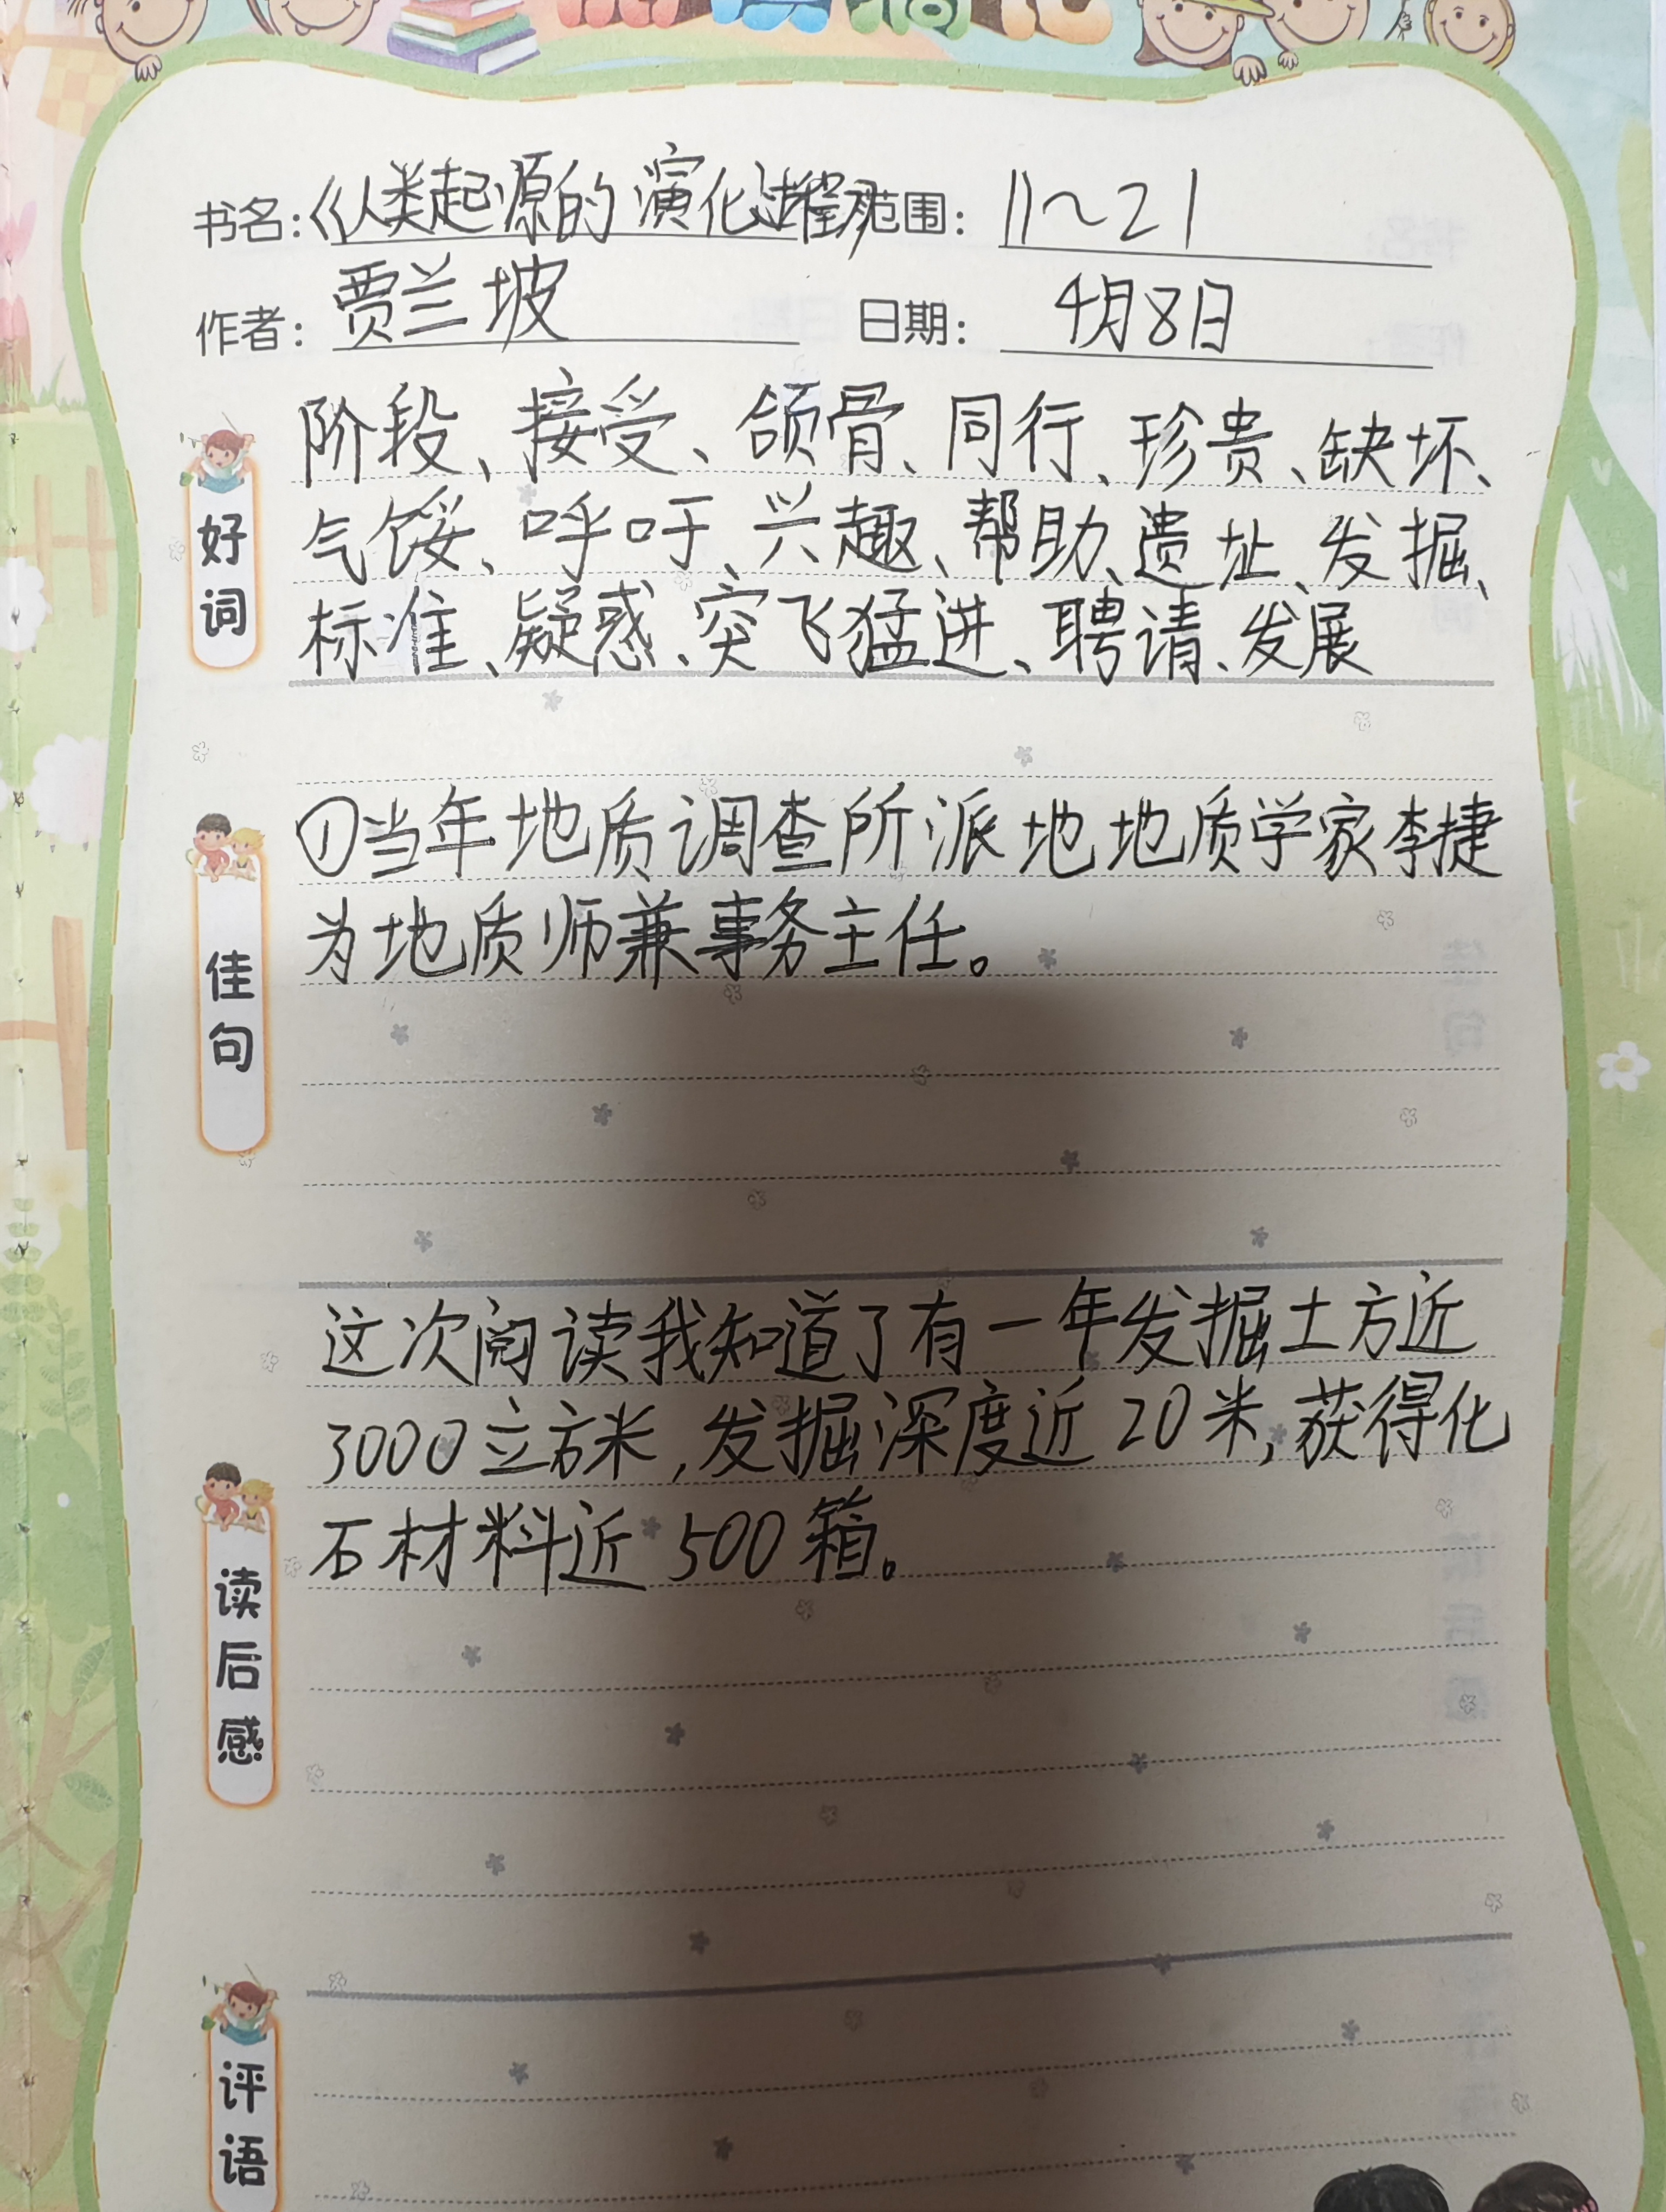 书名：《人类起源的演化过程》范围： 11～21
作者： 贾兰坡 日期： 4月8日
好词
阶段、接受、颌骨、同行、珍贵、缺坏、
气馁、呼吁、兴趣、帮助、遗址、发掘、
标准、疑惑、突飞猛进、聘请、发展
佳句
①当年地质调查所派地地质学家李捷
为地质师兼事务主任。
读后感
这次阅读我知道了有一年发掘土方近
3000立方米，发掘深度近20米，获得化
石材料近500箱。
评语